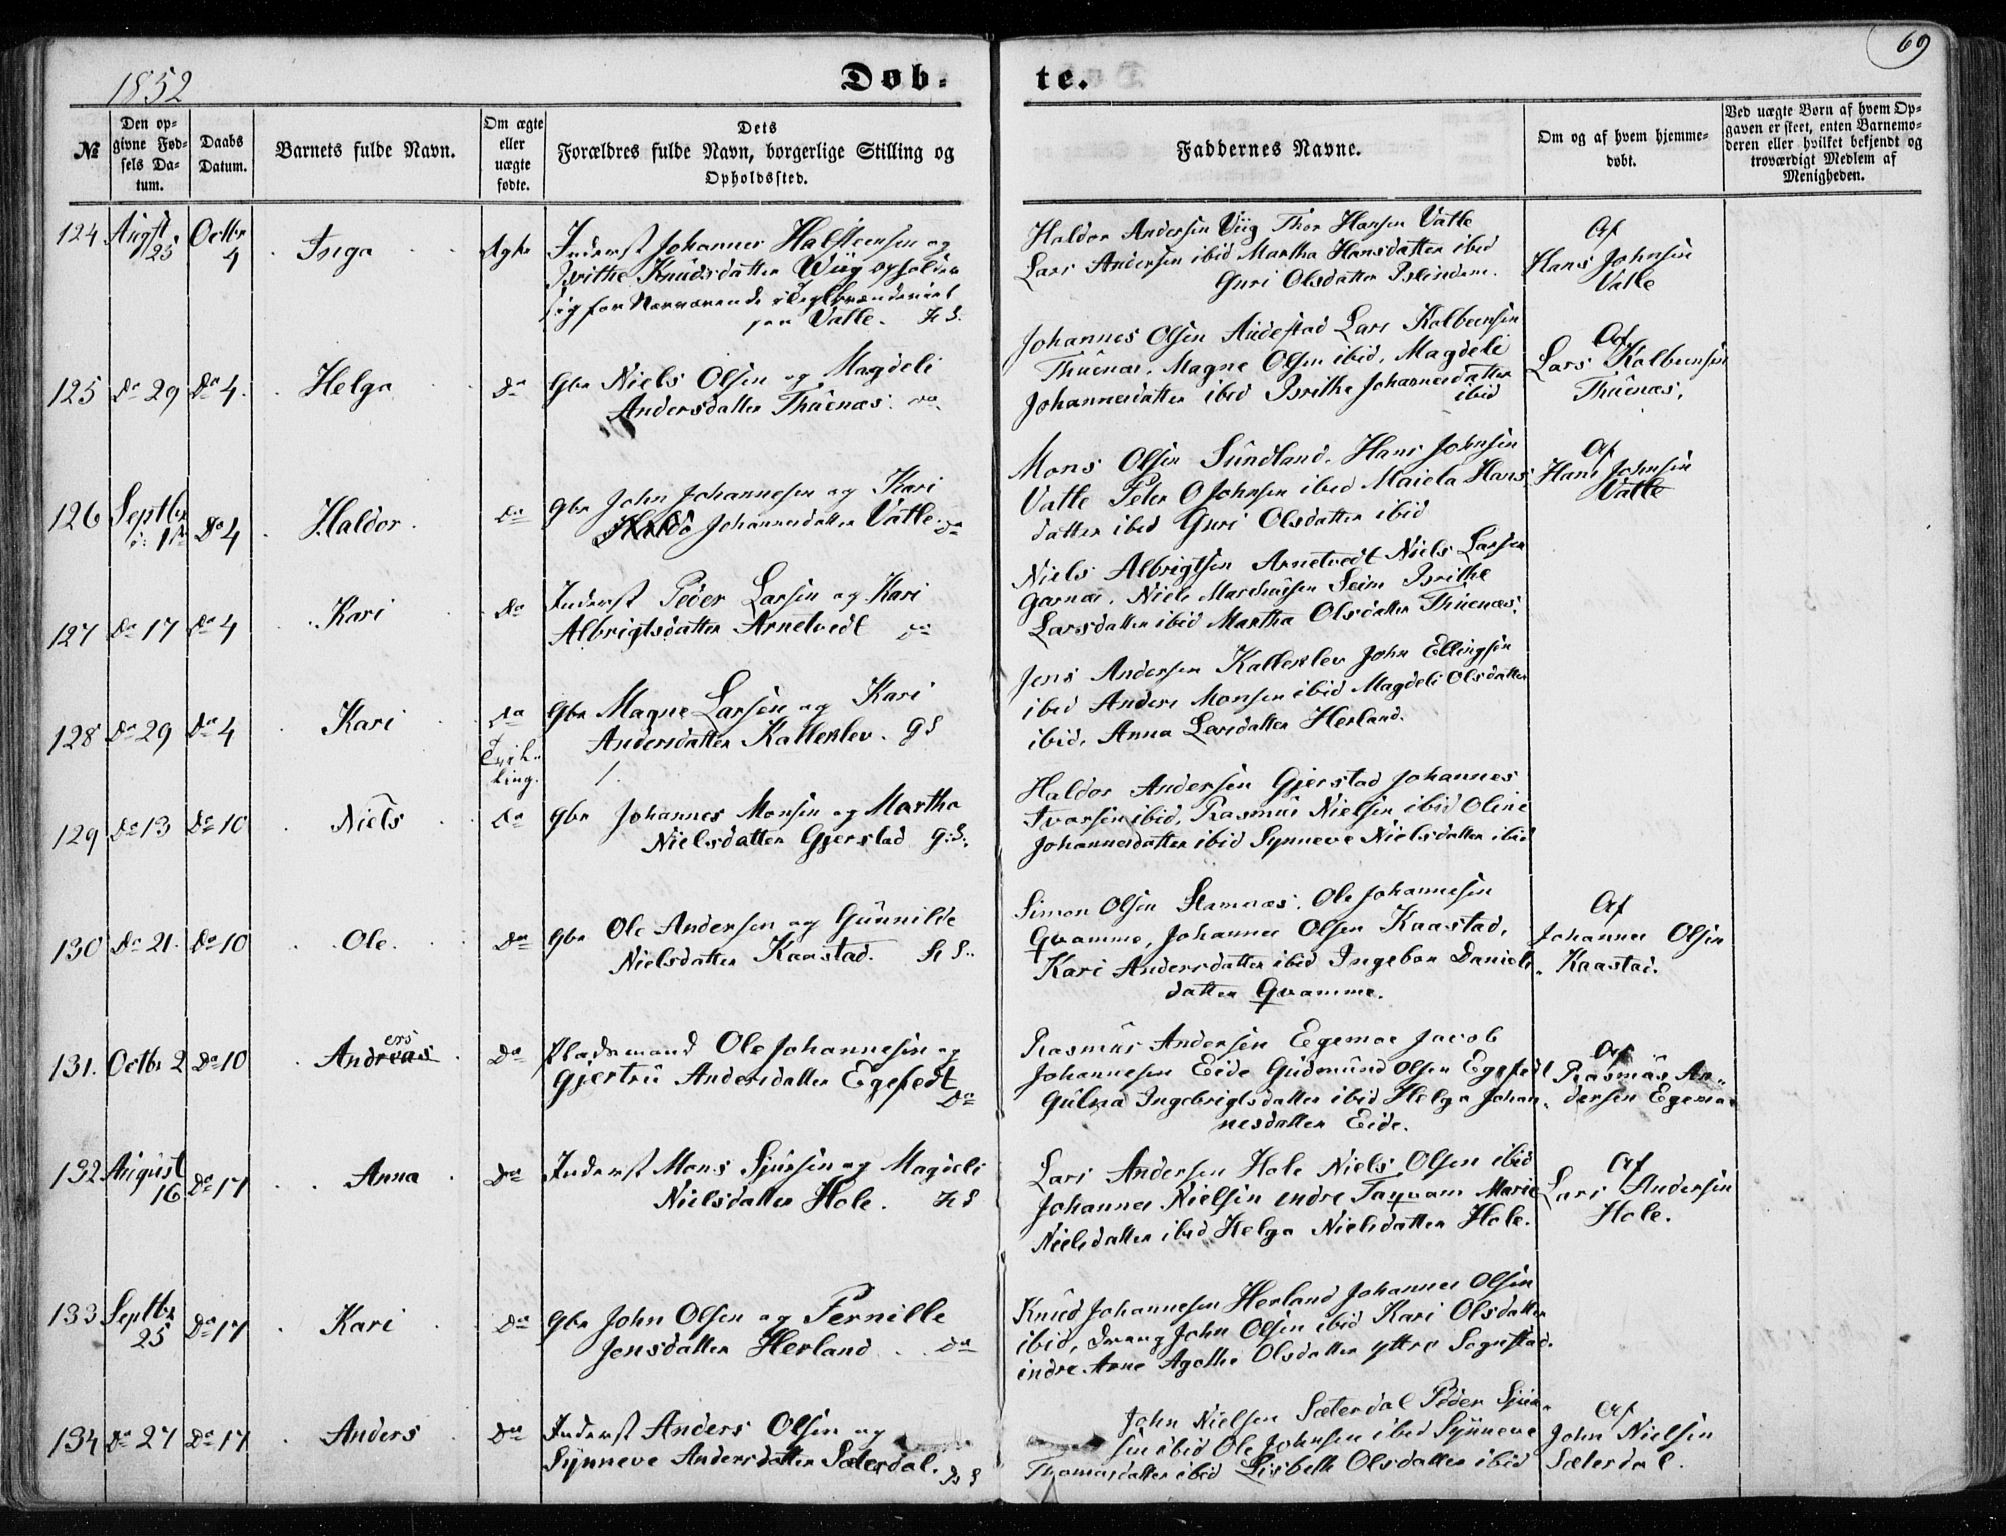 1852
69
Døb-
te.
№
Den op-
givne Fød-
sels Da-
tum.
Daabs
Datum.
Barnets fulde Navn.
Om ægte
eller
uægte
fødte.
Dets
Forældres fulde Navn, borgerlige Stilling og
Opholdssted.
Faddernes Navne.
Om og af hvem hjemme-
døbt.
Ved uægte Børn af hvem Op-
gaven er skeet, enten Barnemo-
deren eller hvilket bekjendt og
troværdigt Medlem af
Menigheden.
124 Augst 25 Octbr 4 Inga Ægte
Inderst Johannes Halsteensen og
Brithe Knudsdatter Wiig opholder
sig for Nærværende i Teglbrænderiet
paa Vatle.
Haldor Andersen Viig Thor Hansen Vatle
Lars Andersen ibid Martha Hansdatter ibid
Guri Olsdatter
Af
Hans Johnsen
Vatle
125 Do 29 Do 4. Helga Do
Gbr Niels Olsen og Magdeli
Andersdatter Thuenæs. Do
Johannes Olsen Audestad Lars Kolbeensen
Thuenæs. Magne Olsen ibid. Magdeli
Johannesdatter ibid Brithe Johannesdatter
ibid
Af
Lars Kolbeensen
Thuenæs.
126 Septbr 1 Do 4 Haldor. Do
Gbr John Johannesen og Kari
Johannesdatter Vatle. Do
Mons Olsen Sundland. Hans Johnsen
Vatle Peder O Johnsen ibid Hans
datter ibid Guri Olsdatter ibid
Af
Hans Johnsen
Vatle
127 Do 17 Do 4 Kari Do
Inderst Peder Larsen og Kari
Albrigtsdatter Arnetvedt Do
Niels Albrigtsen Arnetvedt Niels Larsen
Garnæs. Niels Seim Brithe
Larsdatter ibid Martha Olsdatter Thuenæs.
128 Do 29 Do 4 Kari Do
Gbr Magne Larsen og Kari
Andersdatter Kalleklev. G S
Jens Andersen Kalleklev John Ellingsen
ibid Anders Monsen ibid Magdeli Olsdatter
ibid. Anna Larsdatter Herland.
Tvil-
ling.
1.
129 Do 13 Do 10 Niels Do
Gbr Johannes Monsen og Martha
Nielsdatter Gjerstad G:S:
Haldor Andersen Gjerstad Johannes
Ivarsen ibid, Rasmus Nielsen ibid Oline
Johannesdatter ibid Synneve Nielsdatter ibid
130 Do 21. Do 10 Ole. Do
Gbr Ole Andersen og Gunnilde
Nielsdatter Kaastad.
Simon Olsen Stamnæs. Ole Johannesen
Qvamme, Johannes Olsen Kaastad,
Kari Andersdatter ibid Ingebor Daniels
datter Qvamme.
Af
Johannes Olsen
Kaastad.
131. Octbr 2 Do 10 Andreas ers Do
Pladsmand Ole Johannesen og
Gjertru Andersdatter Egefedt Do
Rasmus Andersen Egemoe Jacob
Johannesen Eide Gudmund Olsen Egefedt
Ingebrigtsdatter ibid Helga Johan-
nesdatter Eide.
Af
Rasmus An-
dersen Egemoe
132 August 16 Do 17 Anna Do
Inderst Mons Sjursen og Magdeli
Nielsdatter Hole.
Lars Andersen Hole Niels Olsen ibid
Johannes Nielsen indre Taqvam Marie
Nielsdatter ibid Helga Nielsdatter Hole.
Af
Lars Andersen
Hole.
133 Septbr 25 Do 17 Kari Do
Gbr John Olsen og Pernille
Jensdatter Herland. Do
Knud Johannesen Herland Johannes Olsen
ibid, Dreng John Olsen ibid Kari Olsdatter
indre Arne Agathe Olsdatter yttre Sognstad.
134 Do 27 Do 17 Anders Do
Inderst Anders Olsen og
Synneve Andersdatter Sæterdal.
John Nielsen Sæterdal Peder Sjur-
sen ibid Ole Johnsen ibid Synneve
Thomasdatter ibid Lisbeth Olsdatter ibid
Af
John Nielsen
Sæterdal.